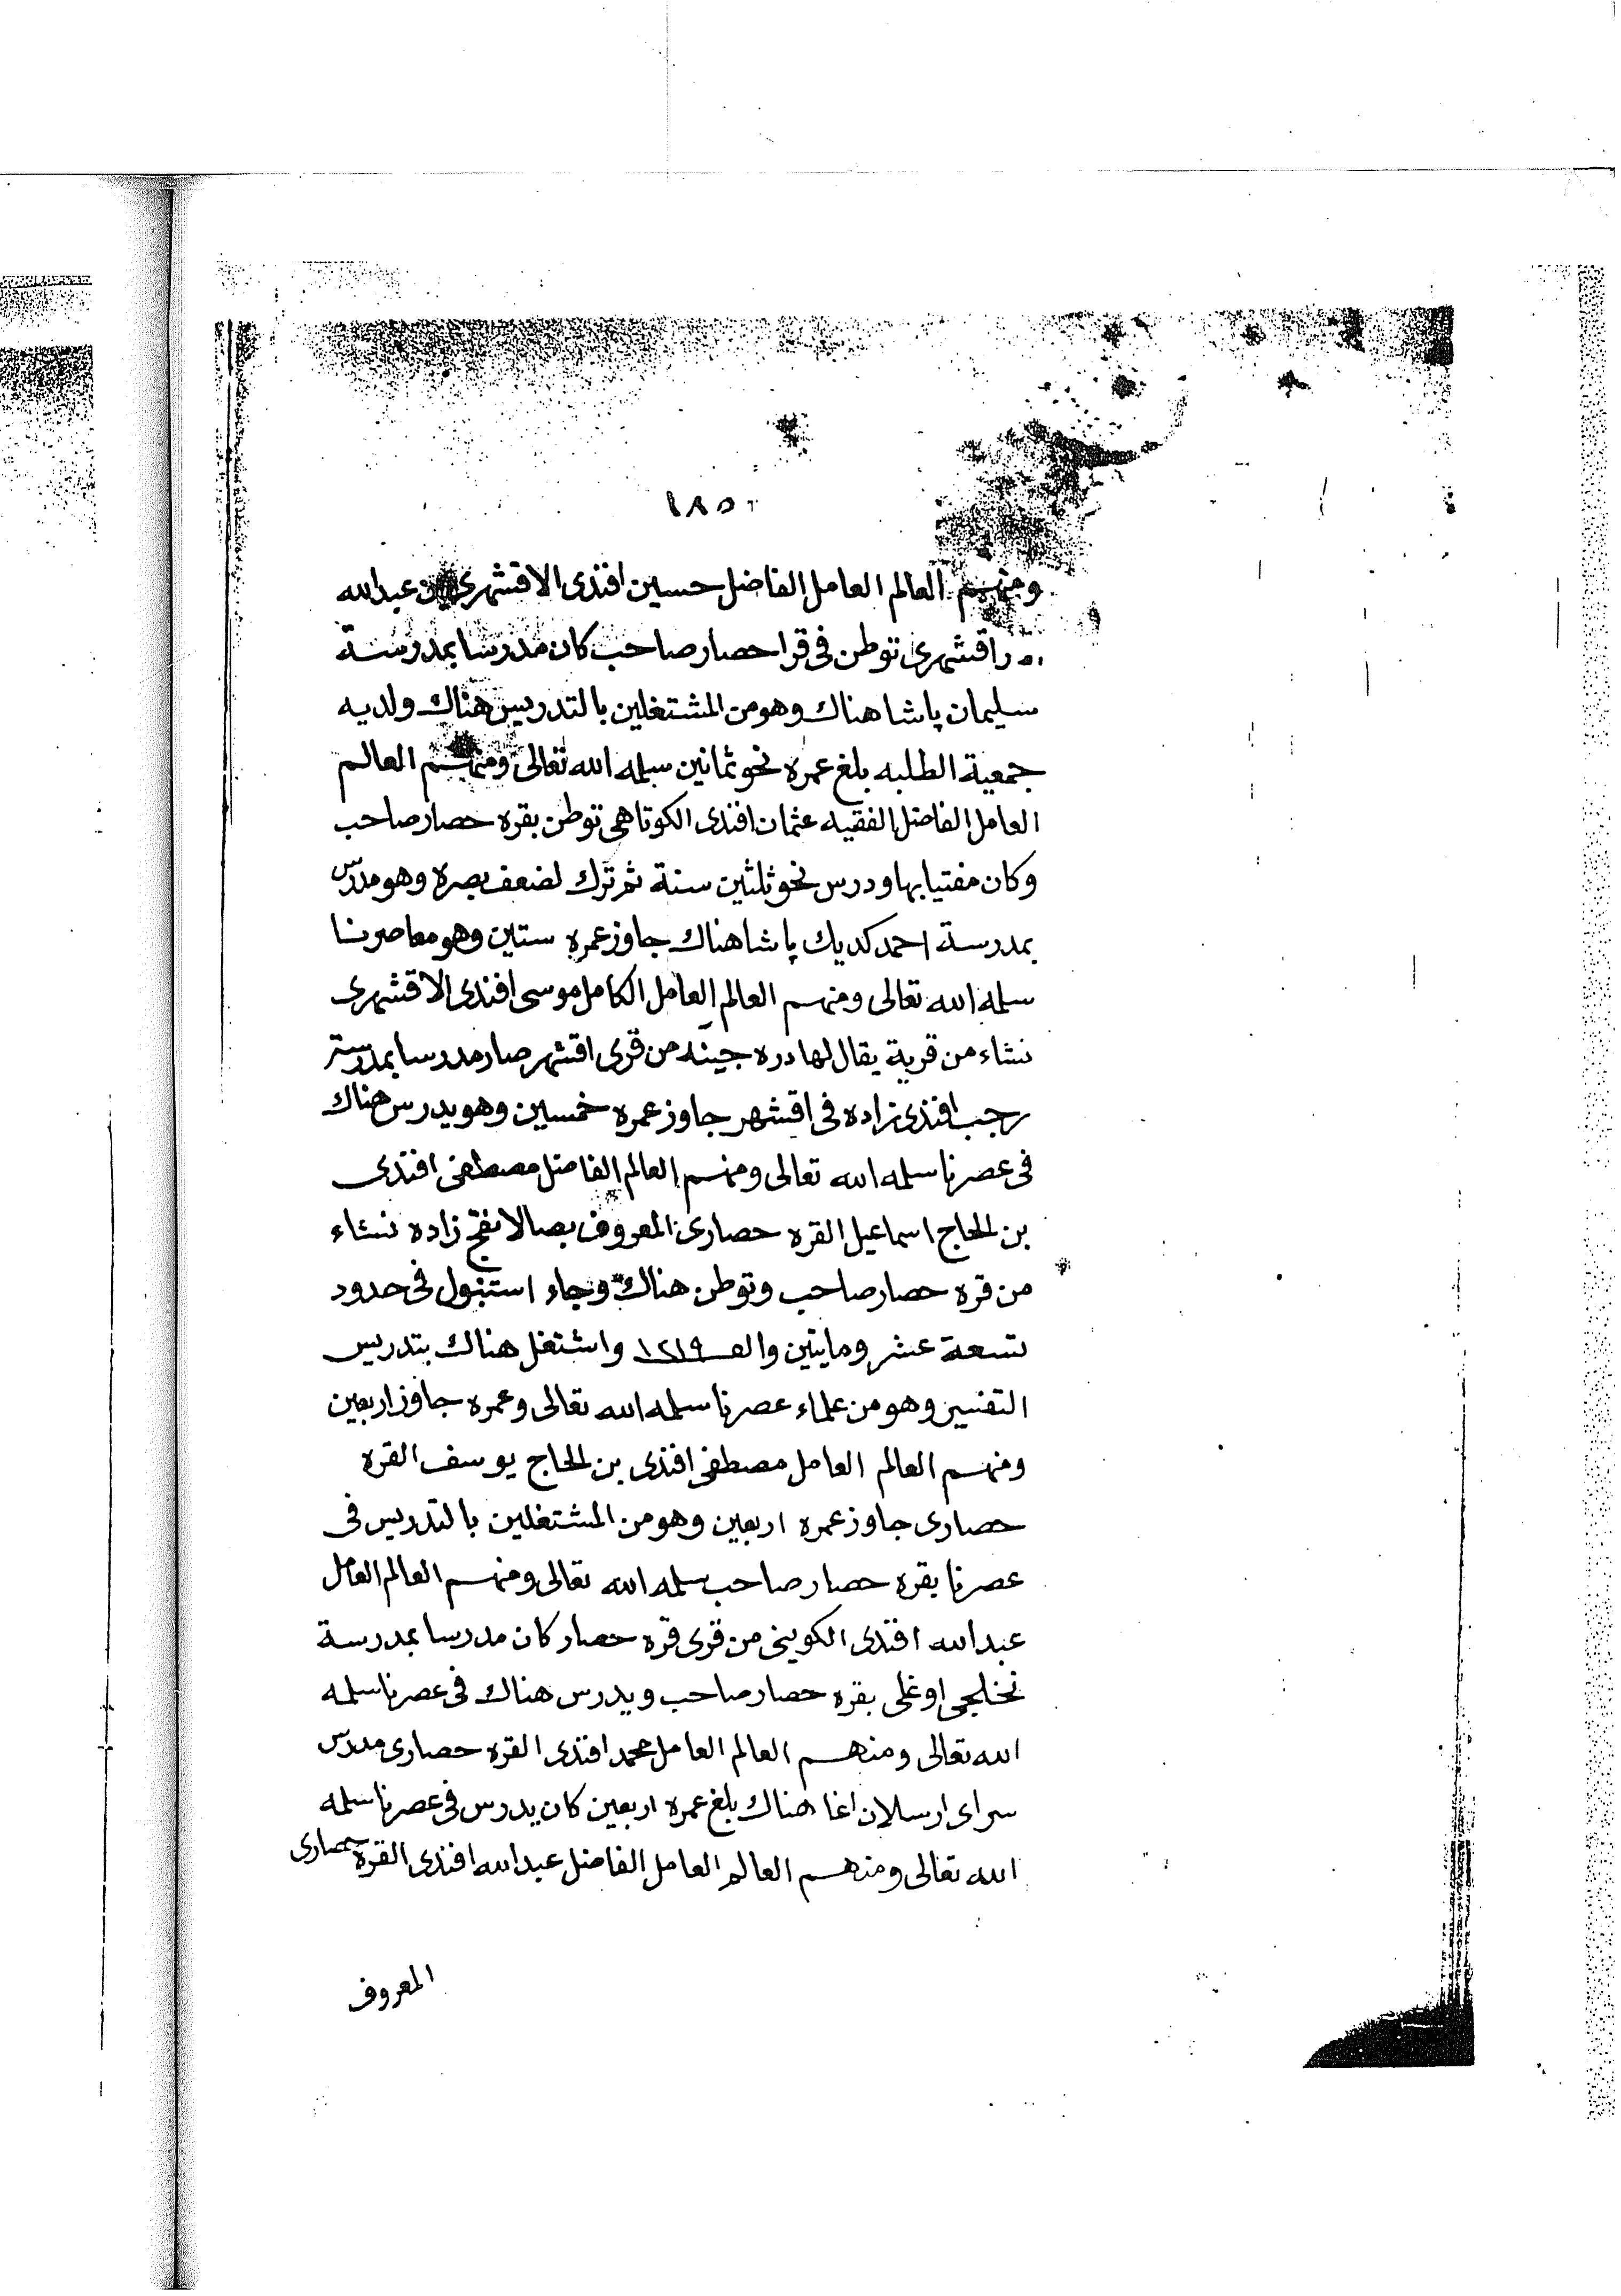 ١٨٥
ومنهم العالم العامل الفاضل حسين افندى الاقشهرى بن عبدالله
اقشهرى توطن فى قرا حصار صاحب كان مدرسا بمدرسة
سليمان پاشا هناك وهو من المشتغلين بالتدريس هناك ولديه
جمعية الطلبه بلغ عمره نحو ثمانين سلمه الله تعالى ومنهم العالم
العامل الفاضل الفقيه عثمان افندى الكوتاهى توطن بقره حصار صاحب
وكان مفتيا بها ودرس نحو ثلثين سنة ثم ترك لضعف بصره وهو مدرس
بمدرسة احمد كديك پاشا هناك جاوز عمره ستين وهو معاصرنا
سلمه الله تعالى ومنهم العالم العامل الكامل موسى افندى الاقشهرى
نشاء من قرية يقال لها دره جينه من قرى اقشهر صار مدرسا بمدرسة
رجب افندى زاده فى اقشهر جاوز عمره خمسين وهو يدرس هناك
فى عصرنا سلمه الله تعالى ومنهم العالم الفاضل مصطفى افندى
بن الحاج اسماعيل القره حصارى المعروف بصالانفج زاده نشاء
من قره حصار صاحب وتوطن هناك وجاء استنبول فى حدود
تسعة عشر ومايتين والف ١٢١٩ واشتغل هناك بتدريس
التفسير وهو من علماء عصرنا سلمه الله تعالى وعمره جاوز اربعين
ومنهم العالم العامل مصطفى افندى بن الحاج يوسف القره
حصارى جاوز عمره اربعين وهو من المشتغلين بالتدريس فى
عصرنا بقره حصار صاحب سلمه الله تعالى ومنهم العالم العامل
عبدالله افندى الكوينى من قرى قره حصار كان مدرسا بمدرسة
نخلجى اوغلى بقره حصار صاحب ويدرس هناك فى عصرنا سلمه
الله تعالى ومنهم العالم العامل محمد افندى القره حصارى مدرس
سراى ارسلان اغا هناك بلغ عمره اربعين كان يدرس فى عصرنا سلمه
الله تعالى ومنهم العالم العامل الفاضل عبدالله افندى القره حصارى
المعروف